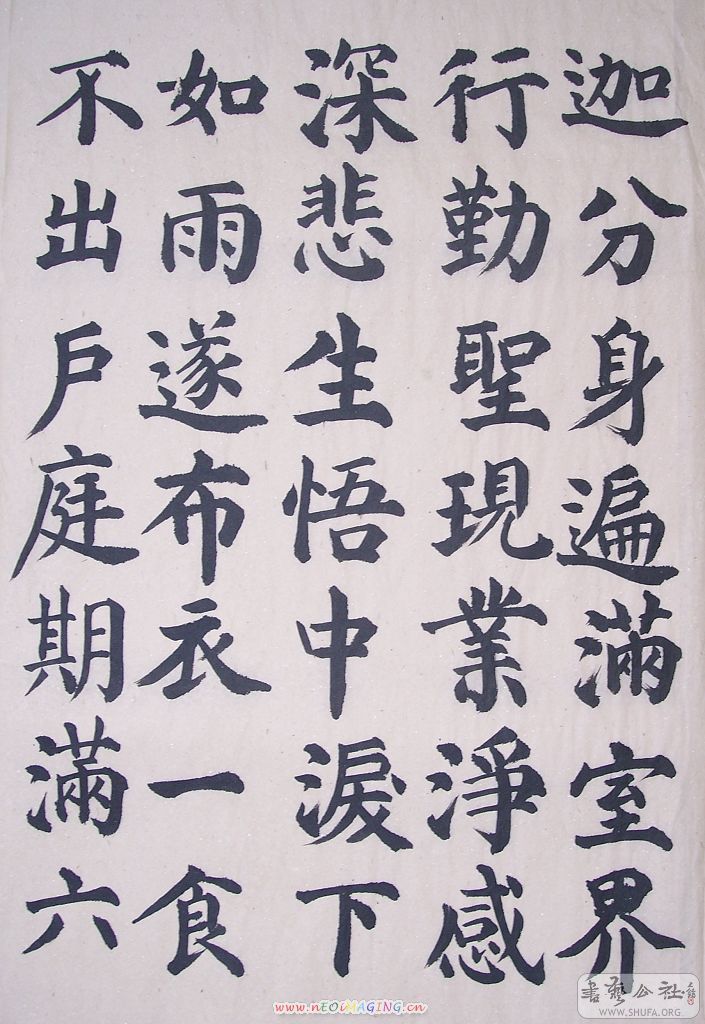 迦分身遍滿室界
行勤聖現業淨感
深悲生悟中淚下
如雨遂布衣一食
不出戶庭期滿六
書藝公社
WWW.SHUFA.ORG
www.nEOiMAGING.cn